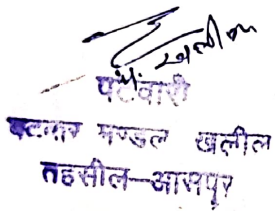 प. खलील
पटवारी
पटवार मण्डल खलील
तहसील-आसपुर